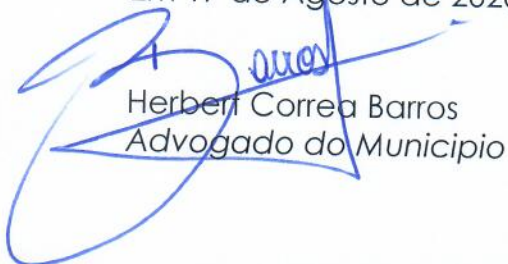 de Agosto de 2020
Barros
Herbert Correa Barros
Advogado do Municipio